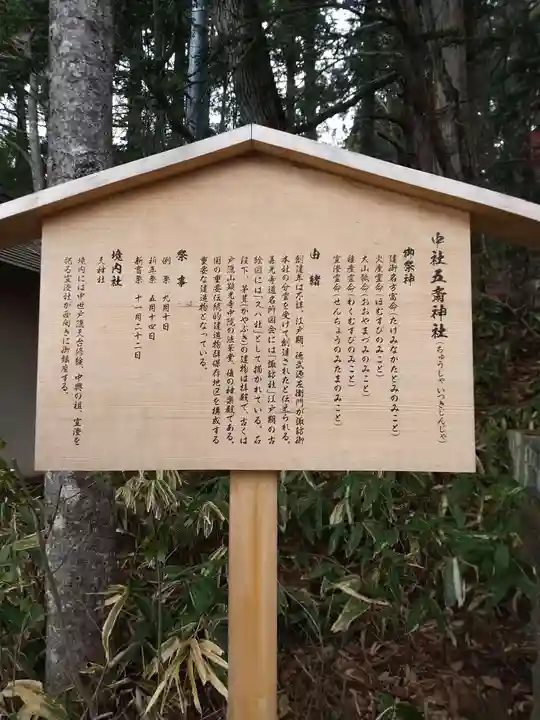 中社五斎神社(ちゅうしゃいつきじんじゃ)
御祭神
建御名方富命(たけみなかたとみのみこと)
火産霊命(ほむすびのみこと)
大山祇命(おおやまづみのみこと)
稚産霊命(わくむすびのみこと)
宣澄霊命(せんちょうのみたまのみこと)
由緒
創建年は不詳、江戸期、徳武源左衛門が諏訪御
本社の分霊を受けて創建されたと伝えられる。
善光寺道名所図会には「諏訪社」江戸期の古
絵図には「スハ社」として描かれている。石
段下、茅葺(かやぶき)の建物は拝殿で、古くは
戸隠山顕光寺中院の法華堂、後の神楽殿である。
国の重要伝統的建造物群保存地区を構成する
重要な建造物となっている。
祭事
例祭 九月十日
祈年祭 五月十四日
新嘗祭 十一月二十二日
境内社
天神社
境内には中世戸隠天台修験、中興の祖、宣澄を
祀る宣澄社が西向きに御鎮座する。